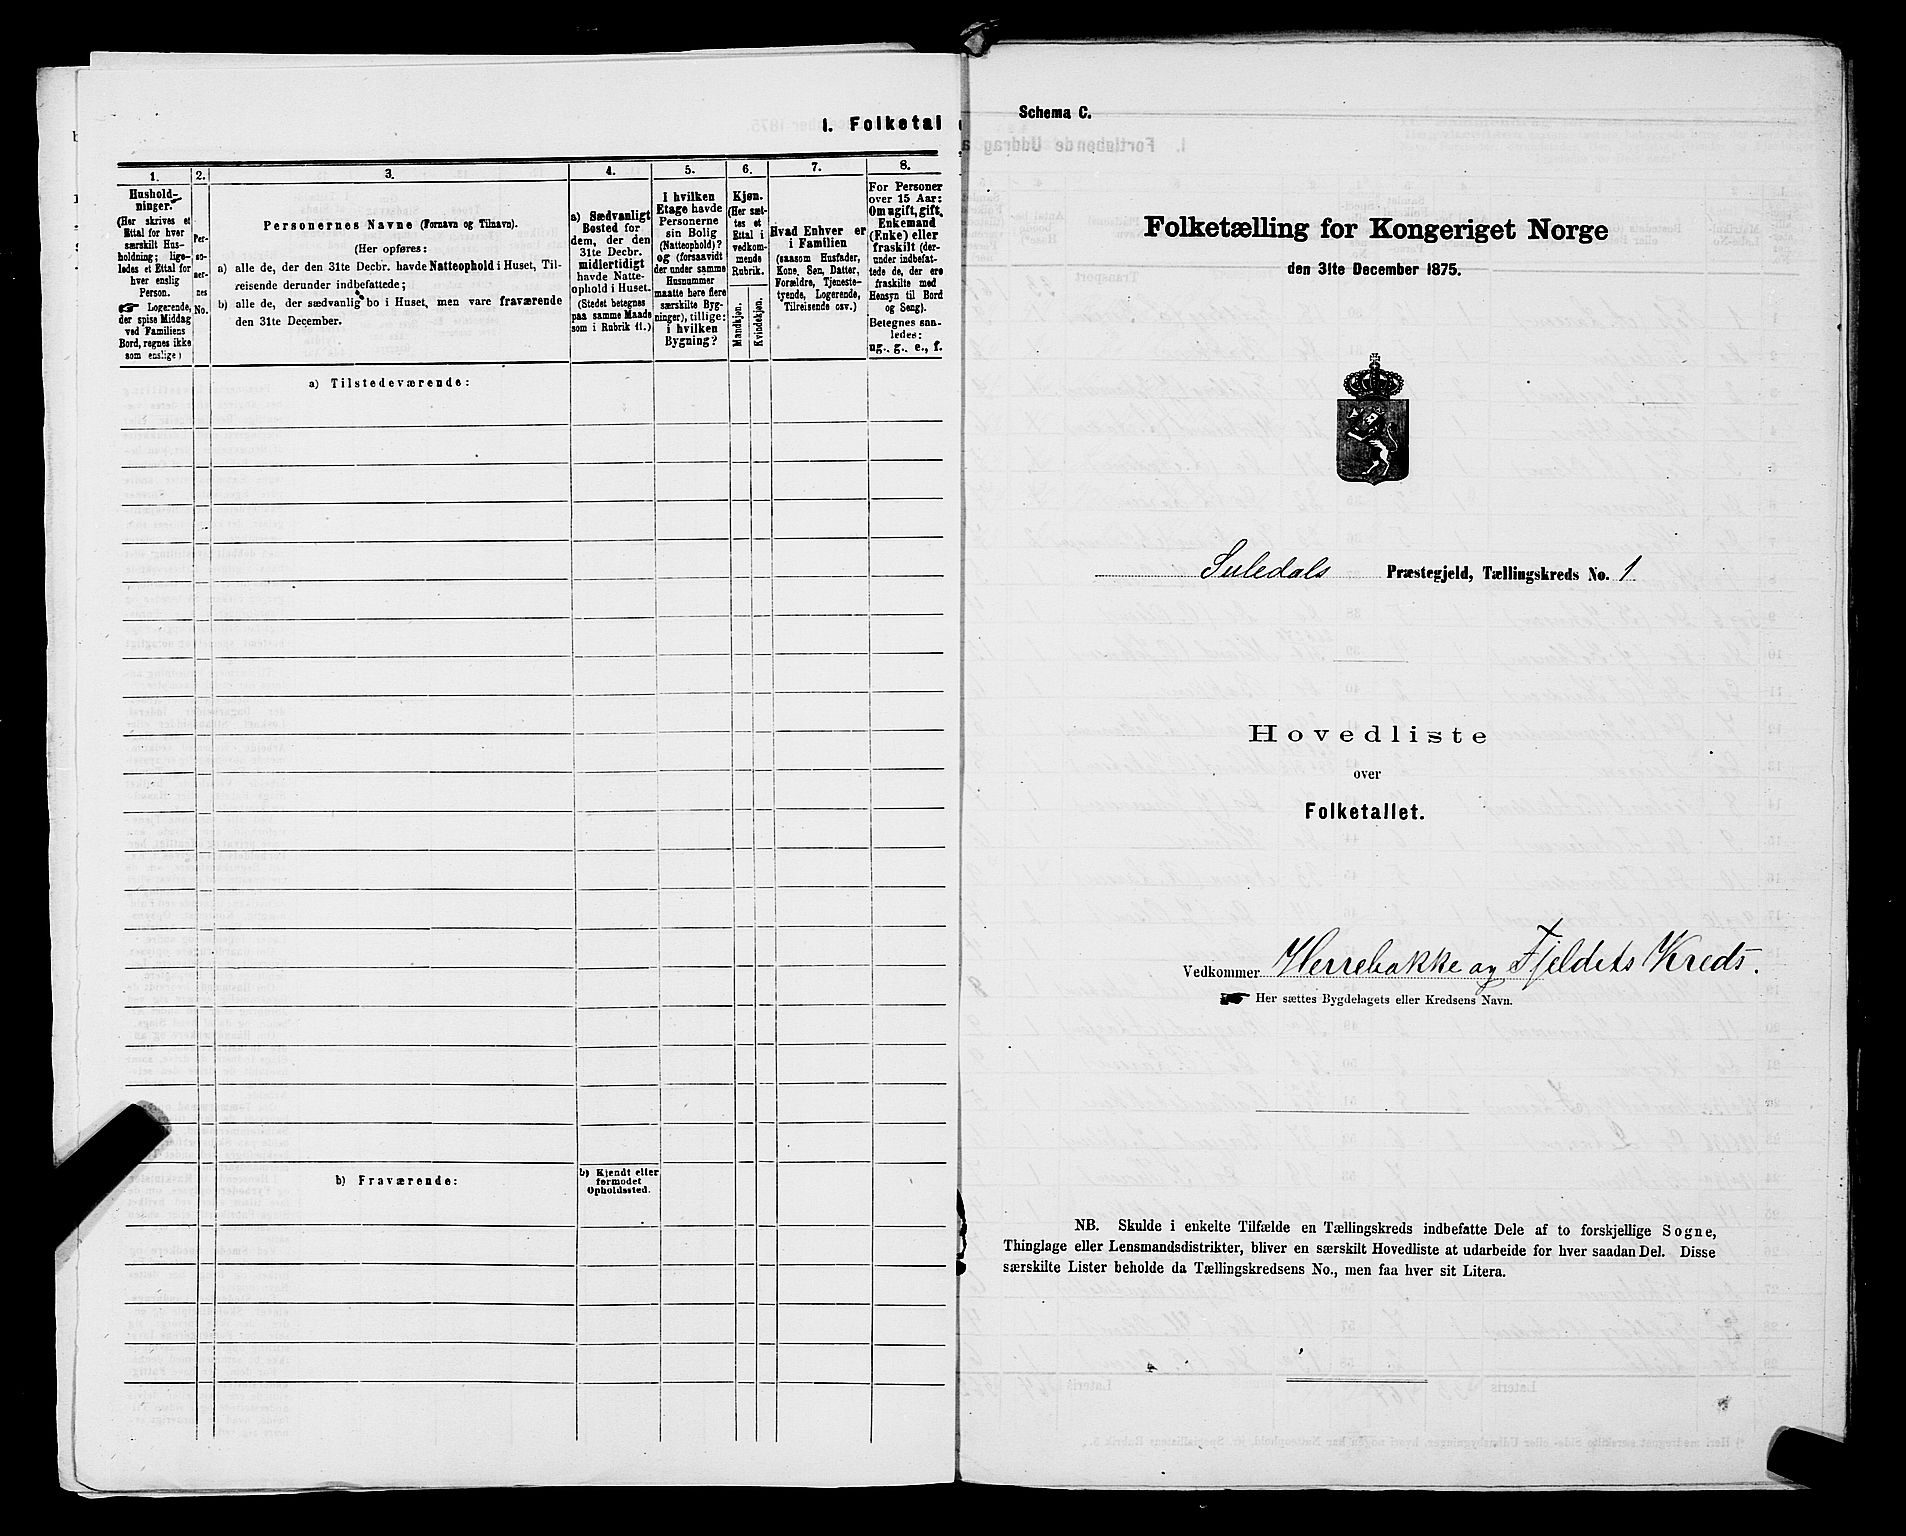 I. Folketal
1.
Hushold-
ninger.
(Her skrives et
Ettal for hver
særskilt Hus-
holdning; lige-
ledes et Ettal for
hver enslig
Person.
☞ Logerende,
der spise Middag
ved Familiens
Bord, regnes ikke
som enslige)
2.
Per-
so-
ner-
nes
No.
3.
Personernes Navne (Fornavn og Tilnavn).
(Her opføres:
a) alle de, der den 31te Decbr. havde Natteophold i Huset, Til-
reisende derunder indbefattede;
b) alle de, der sædvanlig bo i Huset, men vare fraværende
den 31te December.
4.
a) Sædvanligt
Bosted for
dem, der den
31te Decbr.
midlertidigt
havde Natte-
ophold i Huset.
(Stedet betegnes
paa samme Maade
som i Rubrik 11.)
5.
I hvilken
Etage havde
Personerne
sin Bolig
(Natteophold)?
og (forsaavidt
der under samme
Husnummer
maatte høre flere
særskilte Byg-
ninger), tillige:
i hvilken
Bygning?
6.
Kjøn.
(Her sæt-
tes et
Ettal i
vedkom-
mende
Rubrik.
Mandkjøn.
Kvindekjøn.
7.
Hvad Enhver er
i Familien
(saasom Husfader,
Kone, Søn, Datter,
Forældre, Tjeneste-
tyende, Logerende,
Tilreisende osv.)
8.
For Personer
over 15 Aar:
Om ugift, gift,
Enkemand
(Enke) eller
fraskilt (der-
under indbefat-
tede de, der ere
fraskilte med
Hensyn til Bord
og Seng).
Betegnes saa-
ledes:
ug., g., e., f.
a) Tilstedeværende:
b) Fraværende:
b) Kjendt eller
formodet
Opholdssted.
Schema C.
Folketælling for Kongeriget Norge
den 31te December 1875.
Suledals Præstegjeld, Tællingskreds No. 1
Hovedliste
over
Folketallet.
Vedkommer Herrebakke og Fjeldets Kreds.
☞ Her sættes Bygdelagets eller Kredsens Navn.
NB. Skulde i enkelte Tilfælde en Tællingskreds indbefatte Dele af to forskjellige Sogne,
Thinglage eller Lensmandsdistrikter, bliver en særskilt Hovedliste at udarbeide for hver saadan Del. Disse
særskilte Lister beholde da Tællingskredsens No., men faa hver sit Litera.